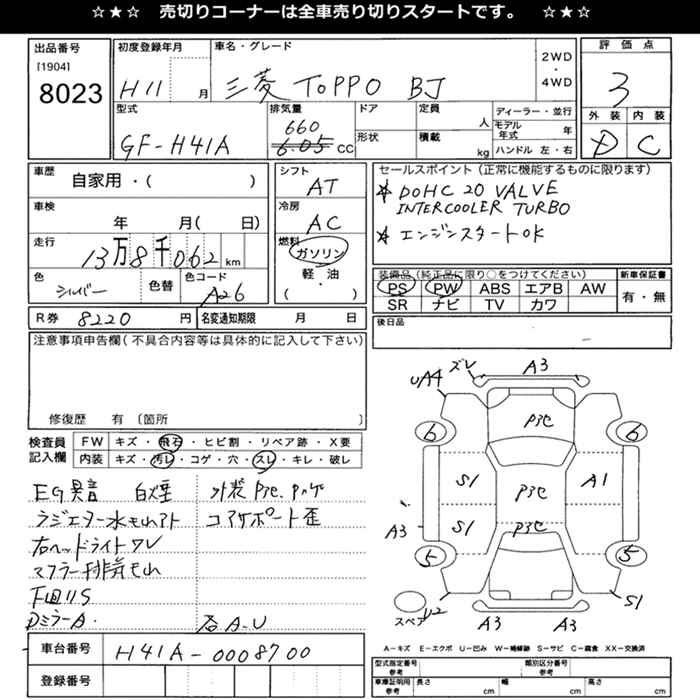 ☆★☆ 売切りコーナーは全車売り切りスタートです。 ☆★☆
出品番号
[1904]
8023
初度登録年月
H11 月
車名・グレード
三菱 TOPPO BJ
2WD
・
4WD
評価点
3
外装 内装
D C
型式
GF-H41A
排気量
660
6.05 CC
ドア
形状
定員
人
積載
kg
ディーラー・並行
モデル年式 年
ハンドル 左・右
車歴
自家用・( )
車検
年 月( 日)
走行
13万8千062 km
色
シルバー
色替
色コード
A26
シフト
AT
冷房
AC
燃料
ガソリン
・
軽・油
( )
セールスポイント(正常に機能するものに限ります)
★ DOHC 20 VALVE
INTERCOOLER TURBO
★ エンジンスタートOK
装備品(純正品に限り○をつけてください)
PS PW ABS エアB AW
SR ナビ TV カワ
新車保証書
有・無
R券 8220 円
名変通知期限 月 日
後日品
注意事項申告欄(不具合内容等は具体的に記入して下さい)
修復歴 有 〔箇所
検査員
記入欄
FW キズ・飛石・ヒビ割・リペア跡・X要
内装 キズ・汚レ・コゲ・穴・スレ・キレ・破レ
EG異音 白煙 外装P3C, Pハゲ
ラジエター水もれアト コアサポート歪
右ヘッドライトワレ
マフラー排気もれ
下回りS
DミラーA. 石A-U
車台番号 H41A-0008700
登録番号
ズレ A3
UA4
P3C
6 6
S1 P3C A1
A3 S1 P3C
5 5
スペア U2 A3 A3 S1
A－キズ E－エクボ U－凹み W－補修跡 S－サビ C－腐食 XX－交換済
型式指定番号
参考
類別区分番号
参考
車庫証明用
参考
長さ cm
幅 cm
高さ cm